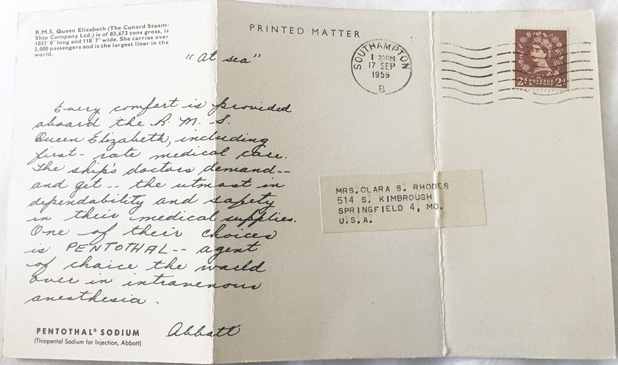 R.M.S. Queen Elizabeth (The Cunard Steam-
Ship Company Ltd.) is of 83,673 tons gross, is
1031' 0" long and 118' 7" wide. She carries over
2,000 passengers and is the largest liner in the
world.
PRINTED MATTER
"At sea"
SOUTHAMPTON
1 30PM
17 SEP
1959
B
2d 2d
Every comfort is provided
aboard the R. M. S.
Queen Elizabeth, including
first-rate medical care.
The ship's doctors demand--
and get -- the utmost in
dependability and safety
in their medical supplies.
One of their choices
is PENTOTHAL -- agent
of choice the world
over in intravenous
anesthesia.
Abbott
MRS. CLARA S. RHODES
514 S. KIMBROUGH
SPRINGFIELD 4, MO.
U.S.A.
PENTOTHAL® SODIUM
(Thiopental Sodium for Injection, Abbott)